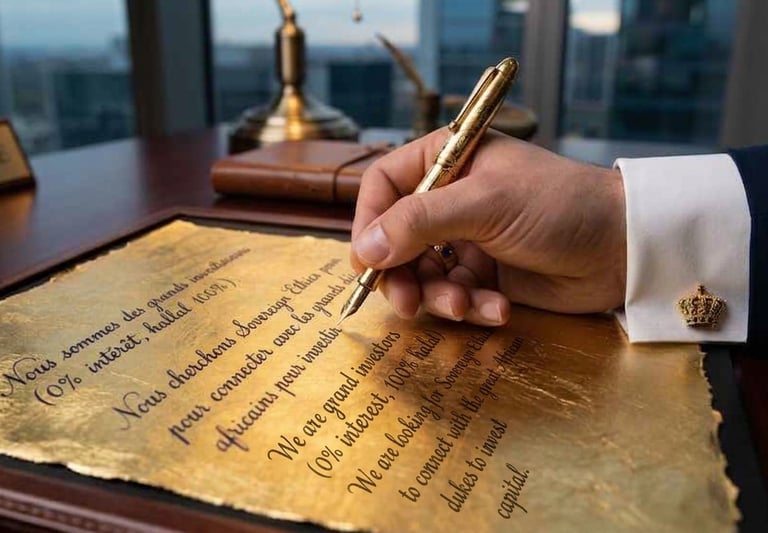 Nous sommes des grands investisseurs
(0% intérêt, hallal 100%).
Nous cherchons Sovereign Ethica pour
pour connecter avec les grands
africains pour investir
We are grand investors
(0% interest, 100% halal)
We are looking for Sovereign
to connect with the great African
dukes to invest
capital.